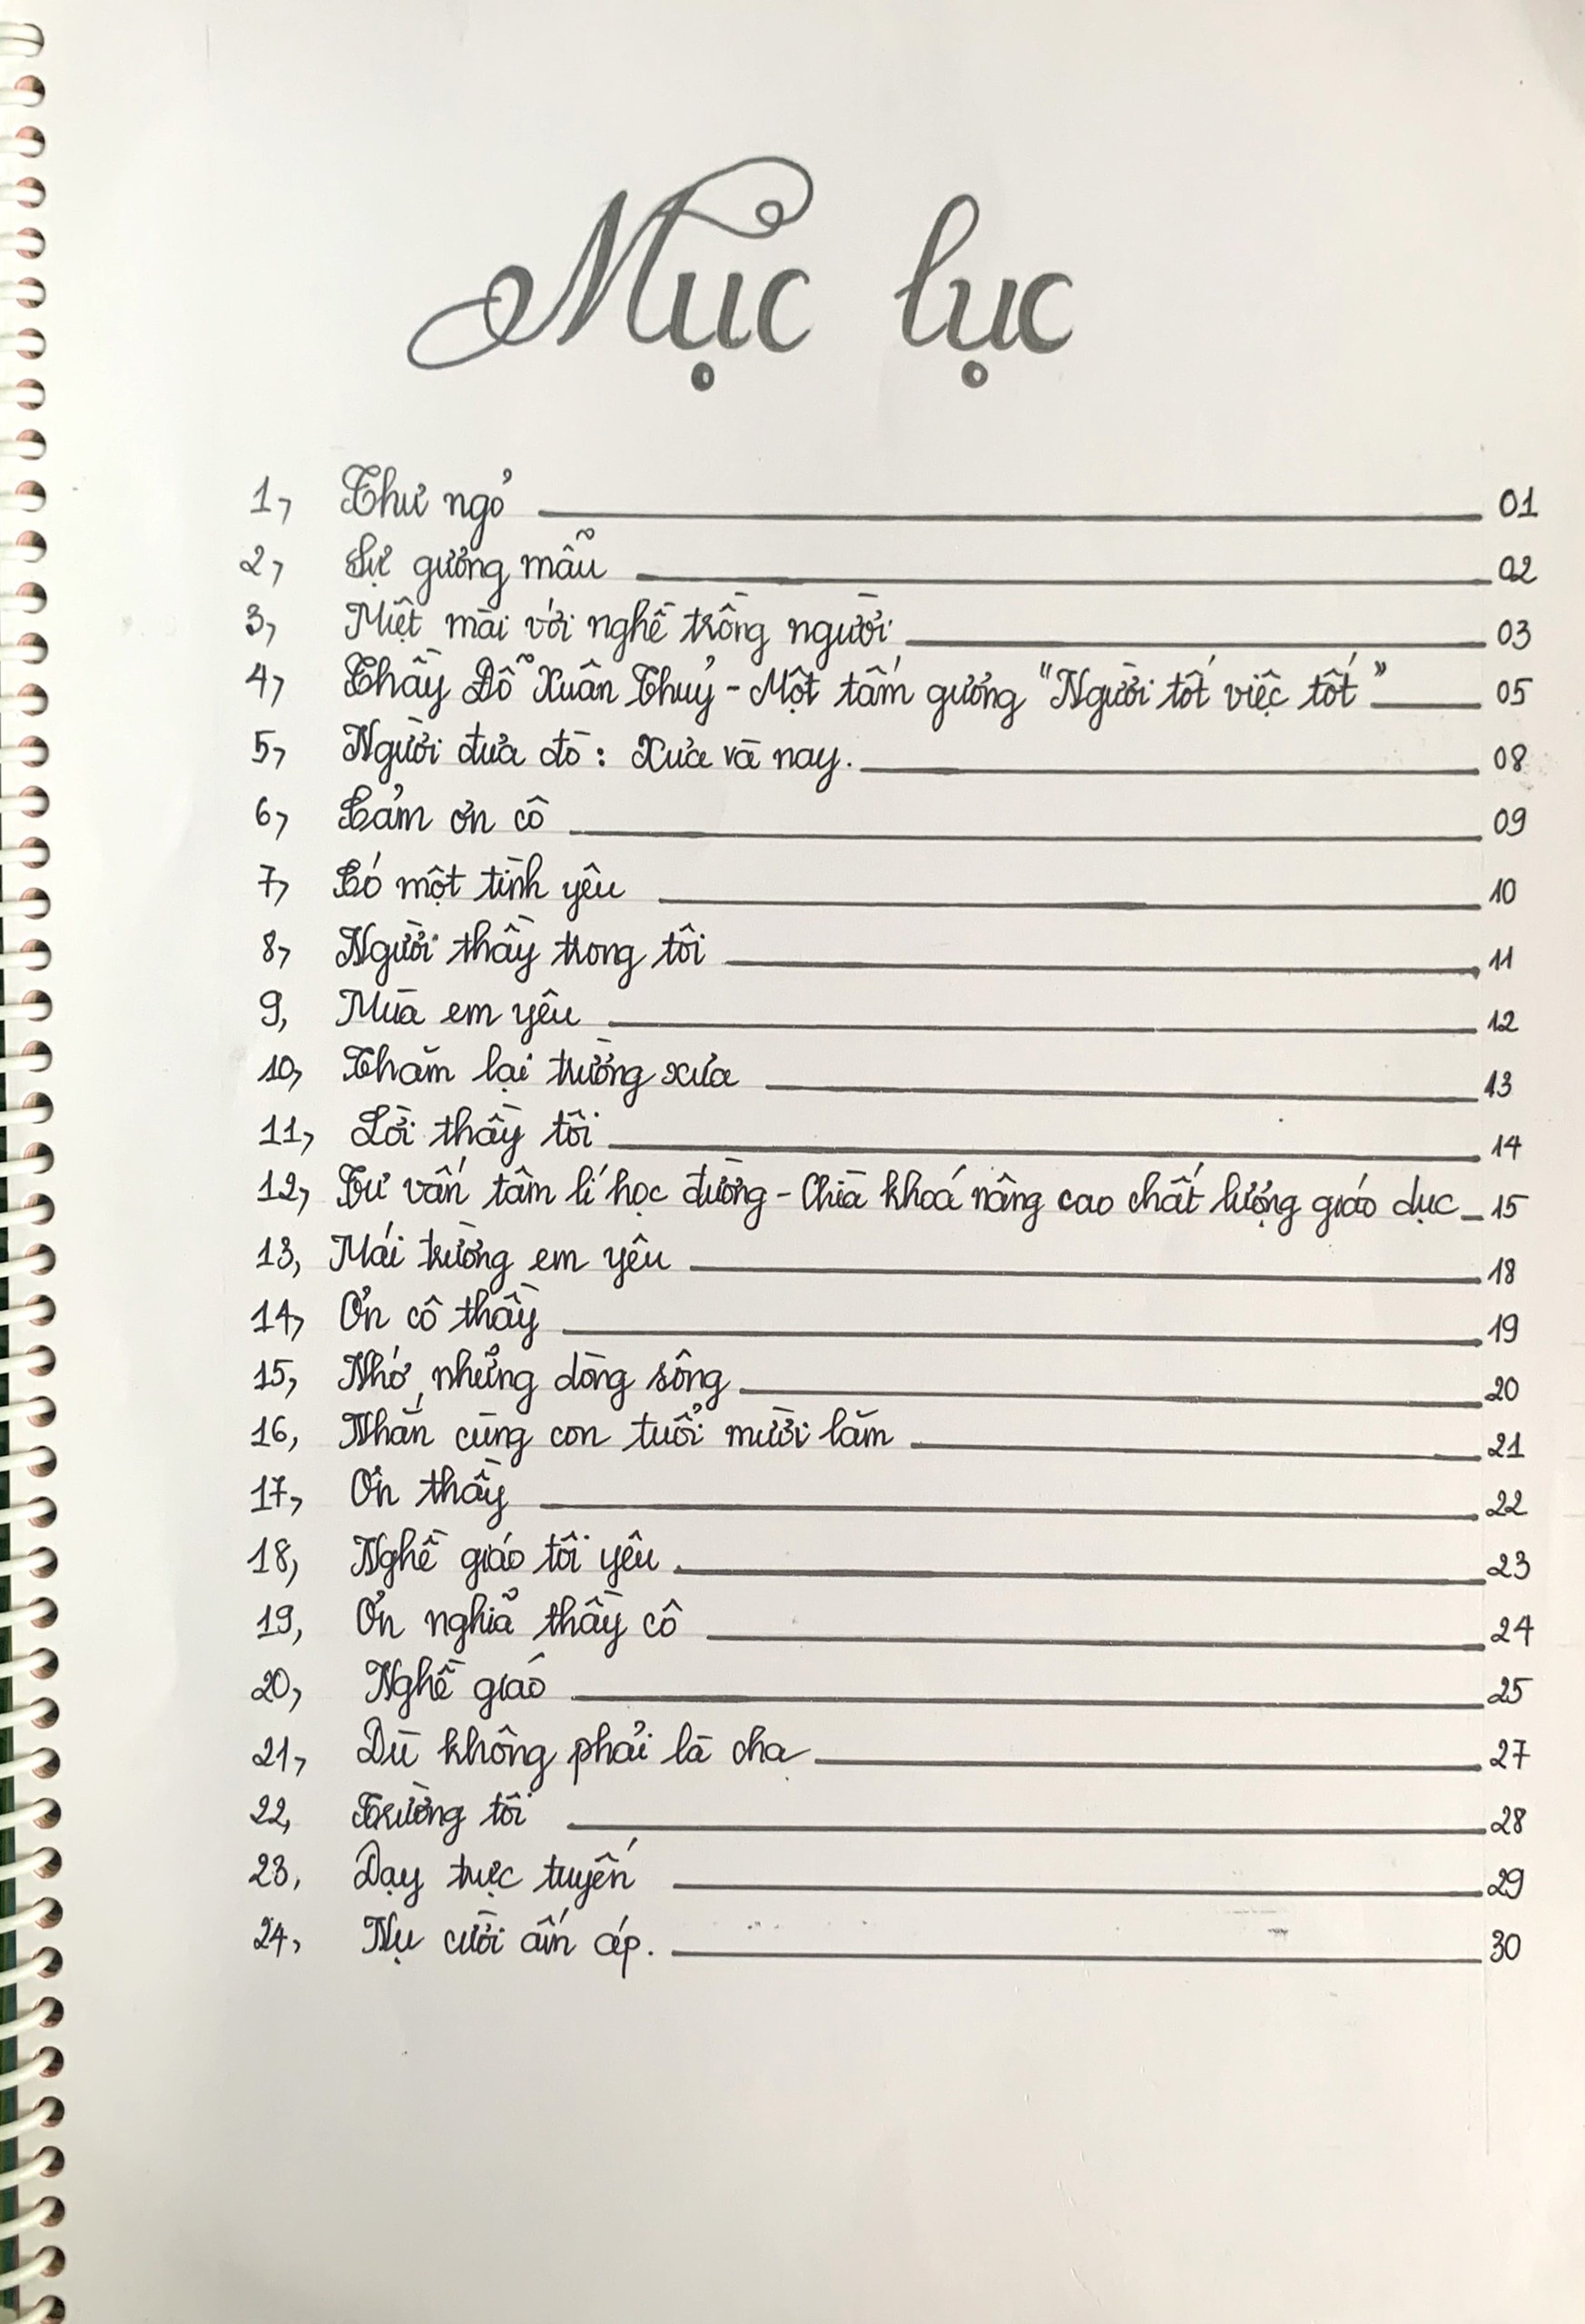 Mục lục
1, Thư ngỏ 01
2, Sự gương mẫu 02
3, Miệt mài với nghề trồng người 03
4, Thầy Đỗ Xuân Thuỷ - Một tấm gương "Người tốt việc tốt" 05
5, Người đưa đò: Xưa và nay. 08
6, Cảm ơn cô 09
7, Có một tình yêu 10
8, Người thầy trong tôi 11
9, Mùa em yêu 12
10, Thăm lại trường xưa 13
11, Lời thầy tôi 14
12, Tư vấn tâm lí học đường - Chìa khoá nâng cao chất lượng giáo dục 15
13, Mái trường em yêu 18
14, Ơn cô thầy 19
15, Nhớ những dòng sông 20
16, Nhắn cùng con tuổi mười lăm 21
17, Ơn thầy 22
18, Nghề giáo tôi yêu 23
19, Ơn nghĩa thầy cô 24
20, Nghề giáo 25
21, Dù không phải là cha 27
22, Trường tôi 28
23, Dạy trực tuyến 29
24, Nụ cười ấm áp. 30